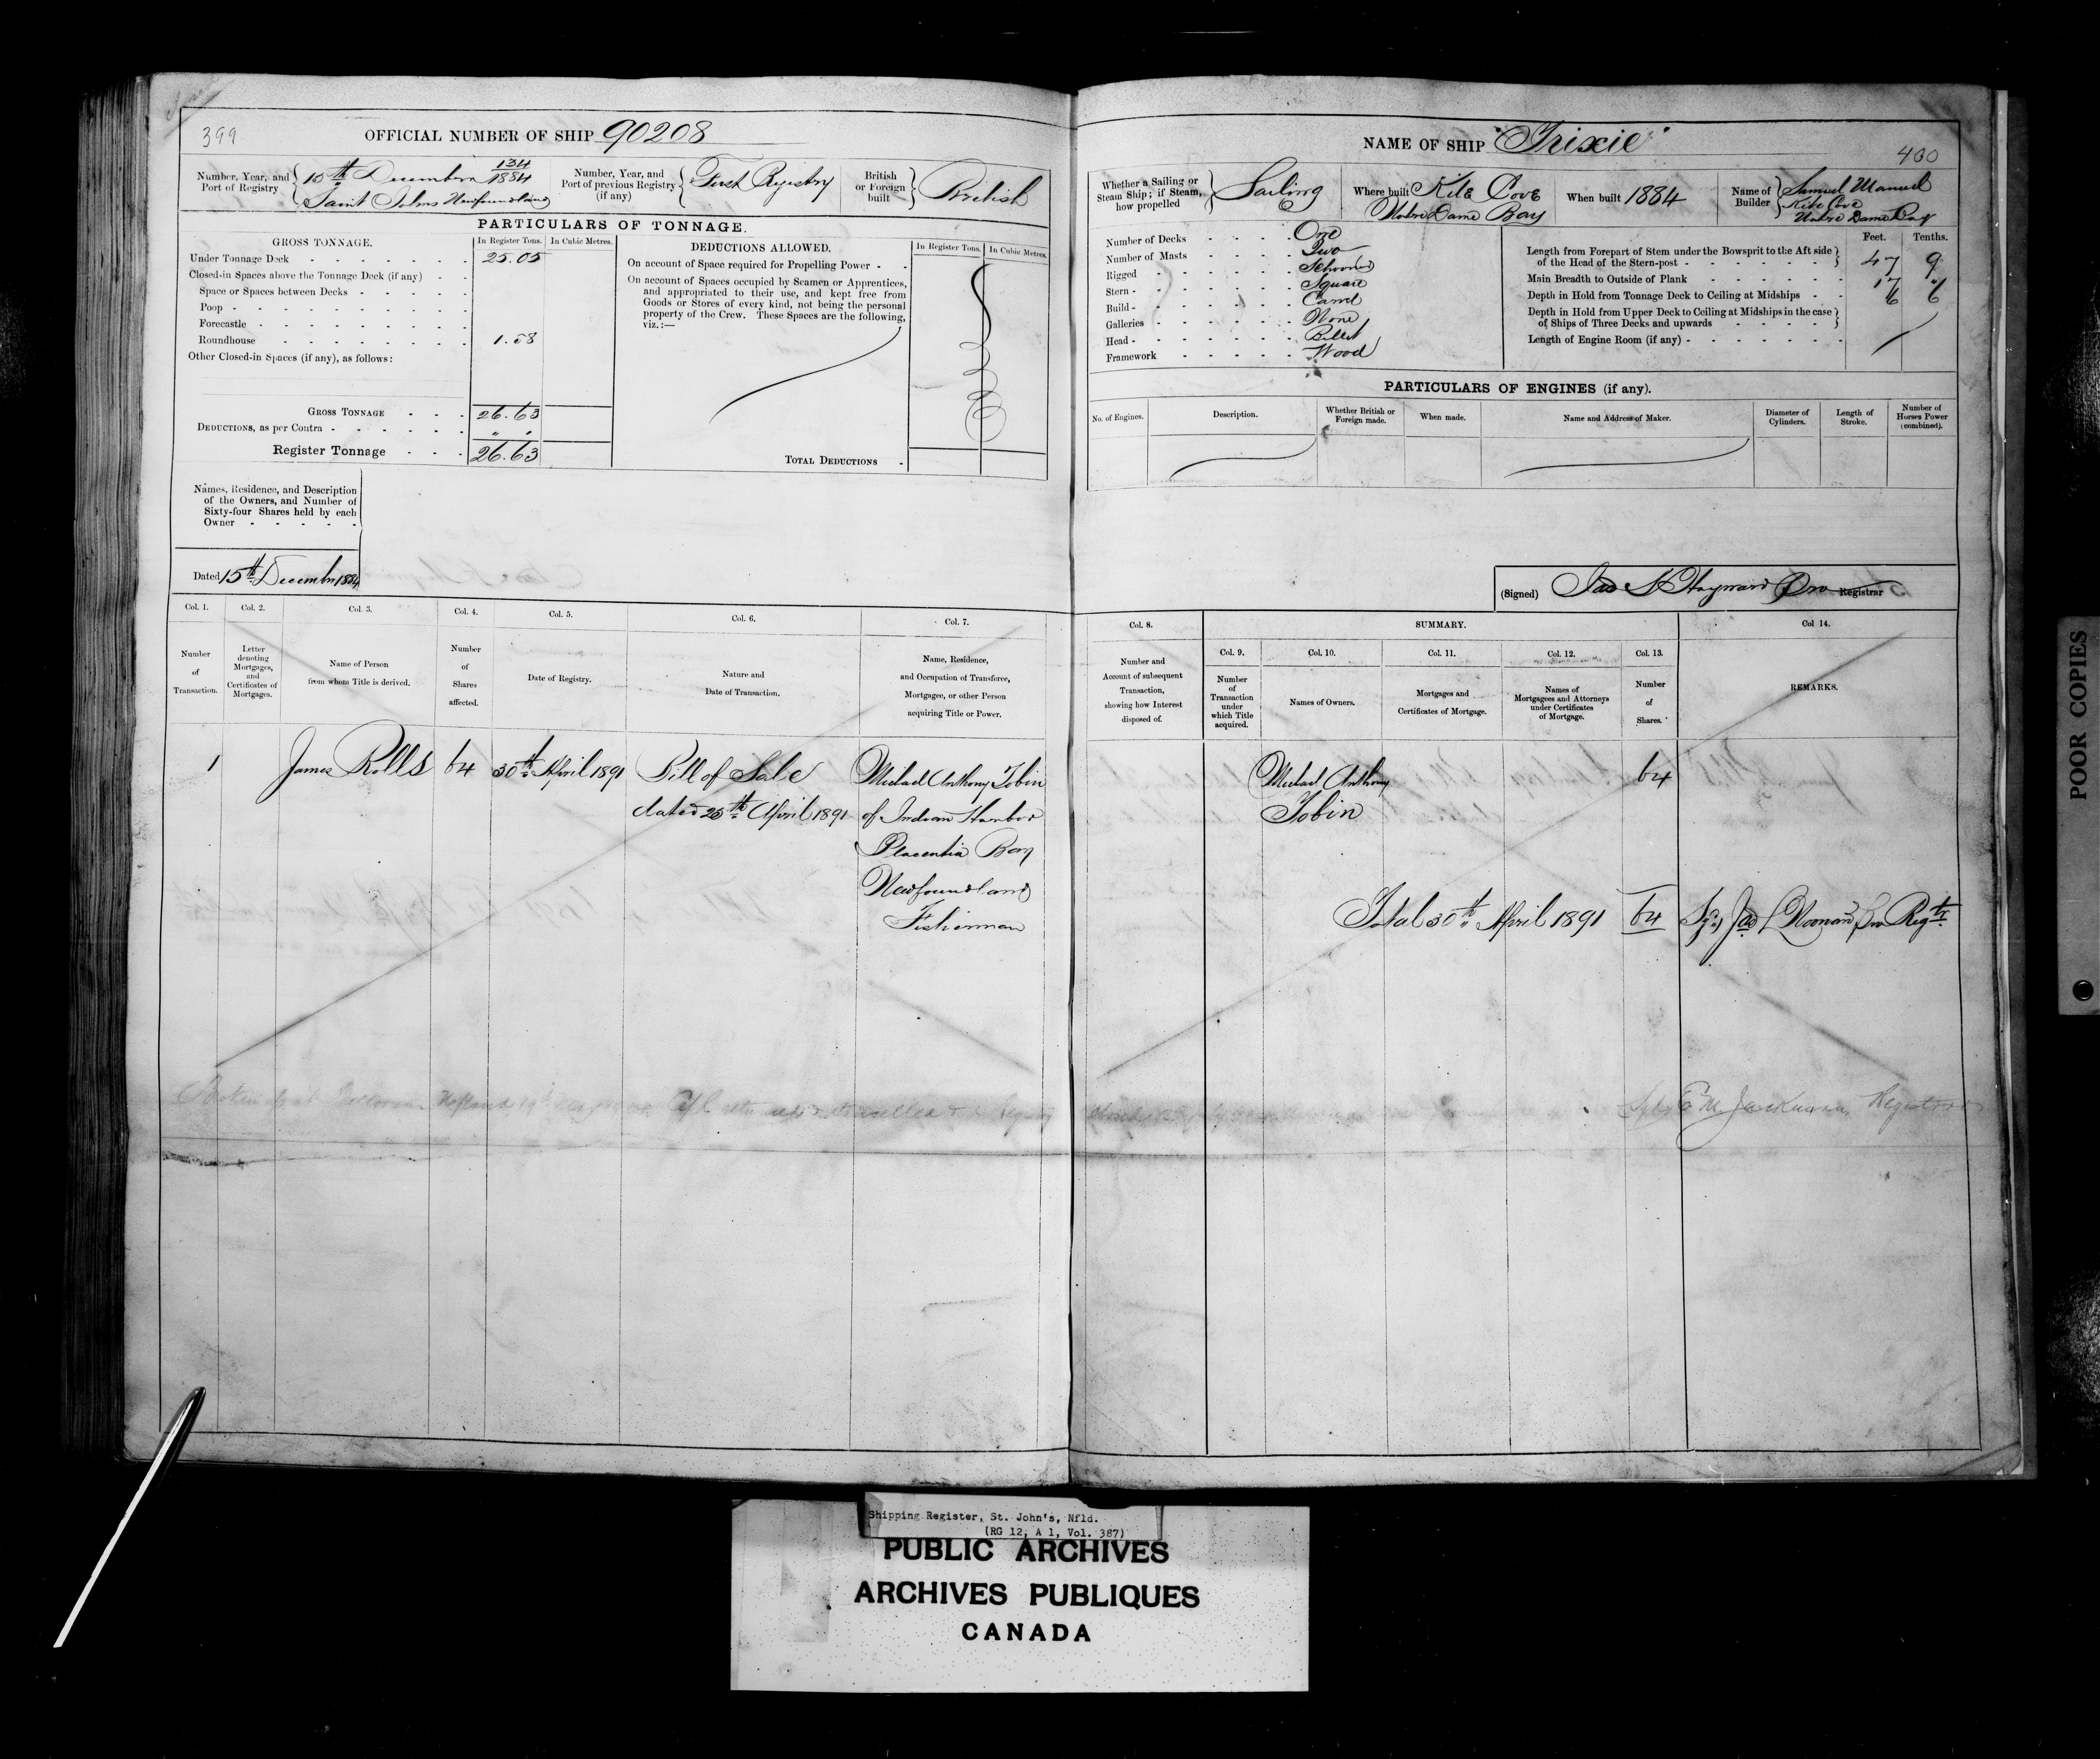 399
OFFICIAL NUMBER OF SHIP 90208
Number, Year, and Port of Registry
15th December 134/1884
Saint Johns Newfoundland
Number, Year, and Port of previous Registry (if any)
First Registry
British or Foreign built
British
PARTICULARS OF TONNAGE.
GROSS TONNAGE.
In Register Tons.
In Cubic Metres.
Under Tonnage Deck 25.05
Closed-in Spaces above the Tonnage Deck (if any)
Space or Spaces between Decks
Poop
Forecastle
Roundhouse 1.58
Other Closed-in Spaces (if any), as follows:
GROSS TONNAGE 26.63
DEDUCTIONS, as per Contra " "
Register Tonnage 26.63
DEDUCTIONS ALLOWED.
In Register Tons.
In Cubic Metres.
On account of Space required for Propelling Power
On account of Spaces occupied by Seamen or Apprentices,
and appropriated to their use, and kept free from
Goods or Stores of every kind, not being the personal
property of the Crew. These Spaces are the following,
viz.:—
TOTAL DEDUCTIONS
Names, Residence, and Description
of the Owners, and Number of
Sixty-four Shares held by each
Owner
Dated 15th December 1884
Col. 1.
Number of Transaction.
Col. 2.
Letter denoting Mortgages, and Certificates of Mortgages.
Col. 3.
Name of Person from whom Title is derived.
Col. 4.
Number of Shares affected.
Col. 5.
Date of Registry.
Col. 6.
Nature and Date of Transaction.
Col. 7.
Name, Residence, and Occupation of Transferee, Mortgagee, or other Person acquiring Title or Power.
1 James Rolls 64 30th April 1891 Bill of Sale Michael Anthony Tobin
dated 25th April 1891 of Indian Harbor
Placentia Bay
Newfoundland
Fisherman
NAME OF SHIP "Trixie"
400
Whether a Sailing or Steam Ship; if Steam, how propelled
Sailing
Where built Kite Cove
Notre Dame Bay
When built 1884
Name of Builder
Samuel Manuel
Kite Cove
Notre Dame Bay
Number of Decks One
Number of Masts Two
Rigged Schooner
Stern Square
Build Carvel
Galleries None
Head Billet
Framework Wood
Feet. Tenths.
Length from Forepart of Stem under the Bowsprit to the Aft side
of the Head of the Stern-post 47 9
Main Breadth to Outside of Plank 17
Depth in Hold from Tonnage Deck to Ceiling at Midships 6 6
Depth in Hold from Upper Deck to Ceiling at Midships in the case
of Ships of Three Decks and upwards
Length of Engine Room (if any)
PARTICULARS OF ENGINES (if any).
No. of Engines.
Description.
Whether British or Foreign made.
When made.
Name and Address of Maker.
Diameter of Cylinders.
Length of Stroke.
Number of Horses Power (combined).
(Signed) Jas S Hayward Pro Registrar
Col. 8.
Number and Account of subsequent Transaction, showing how Interest disposed of.
SUMMARY.
Col. 9.
Number of Transaction under which Title acquired.
Col. 10.
Names of Owners.
Col. 11.
Mortgages and Certificates of Mortgage.
Col. 12.
Names of Mortgagees and Attorneys under Certificates of Mortgage.
Col. 13.
Number of Shares.
Col 14.
REMARKS.
Michael Anthony 64
Tobin
Total 30th April 1891 64 Sgd Jas L Noonan Pro Regtr
Registrar
POOR COPIES
Shipping Register, St. John's, Nfld.
(RG 12, A 1, Vol. 387)
PUBLIC ARCHIVES
ARCHIVES PUBLIQUES
CANADA